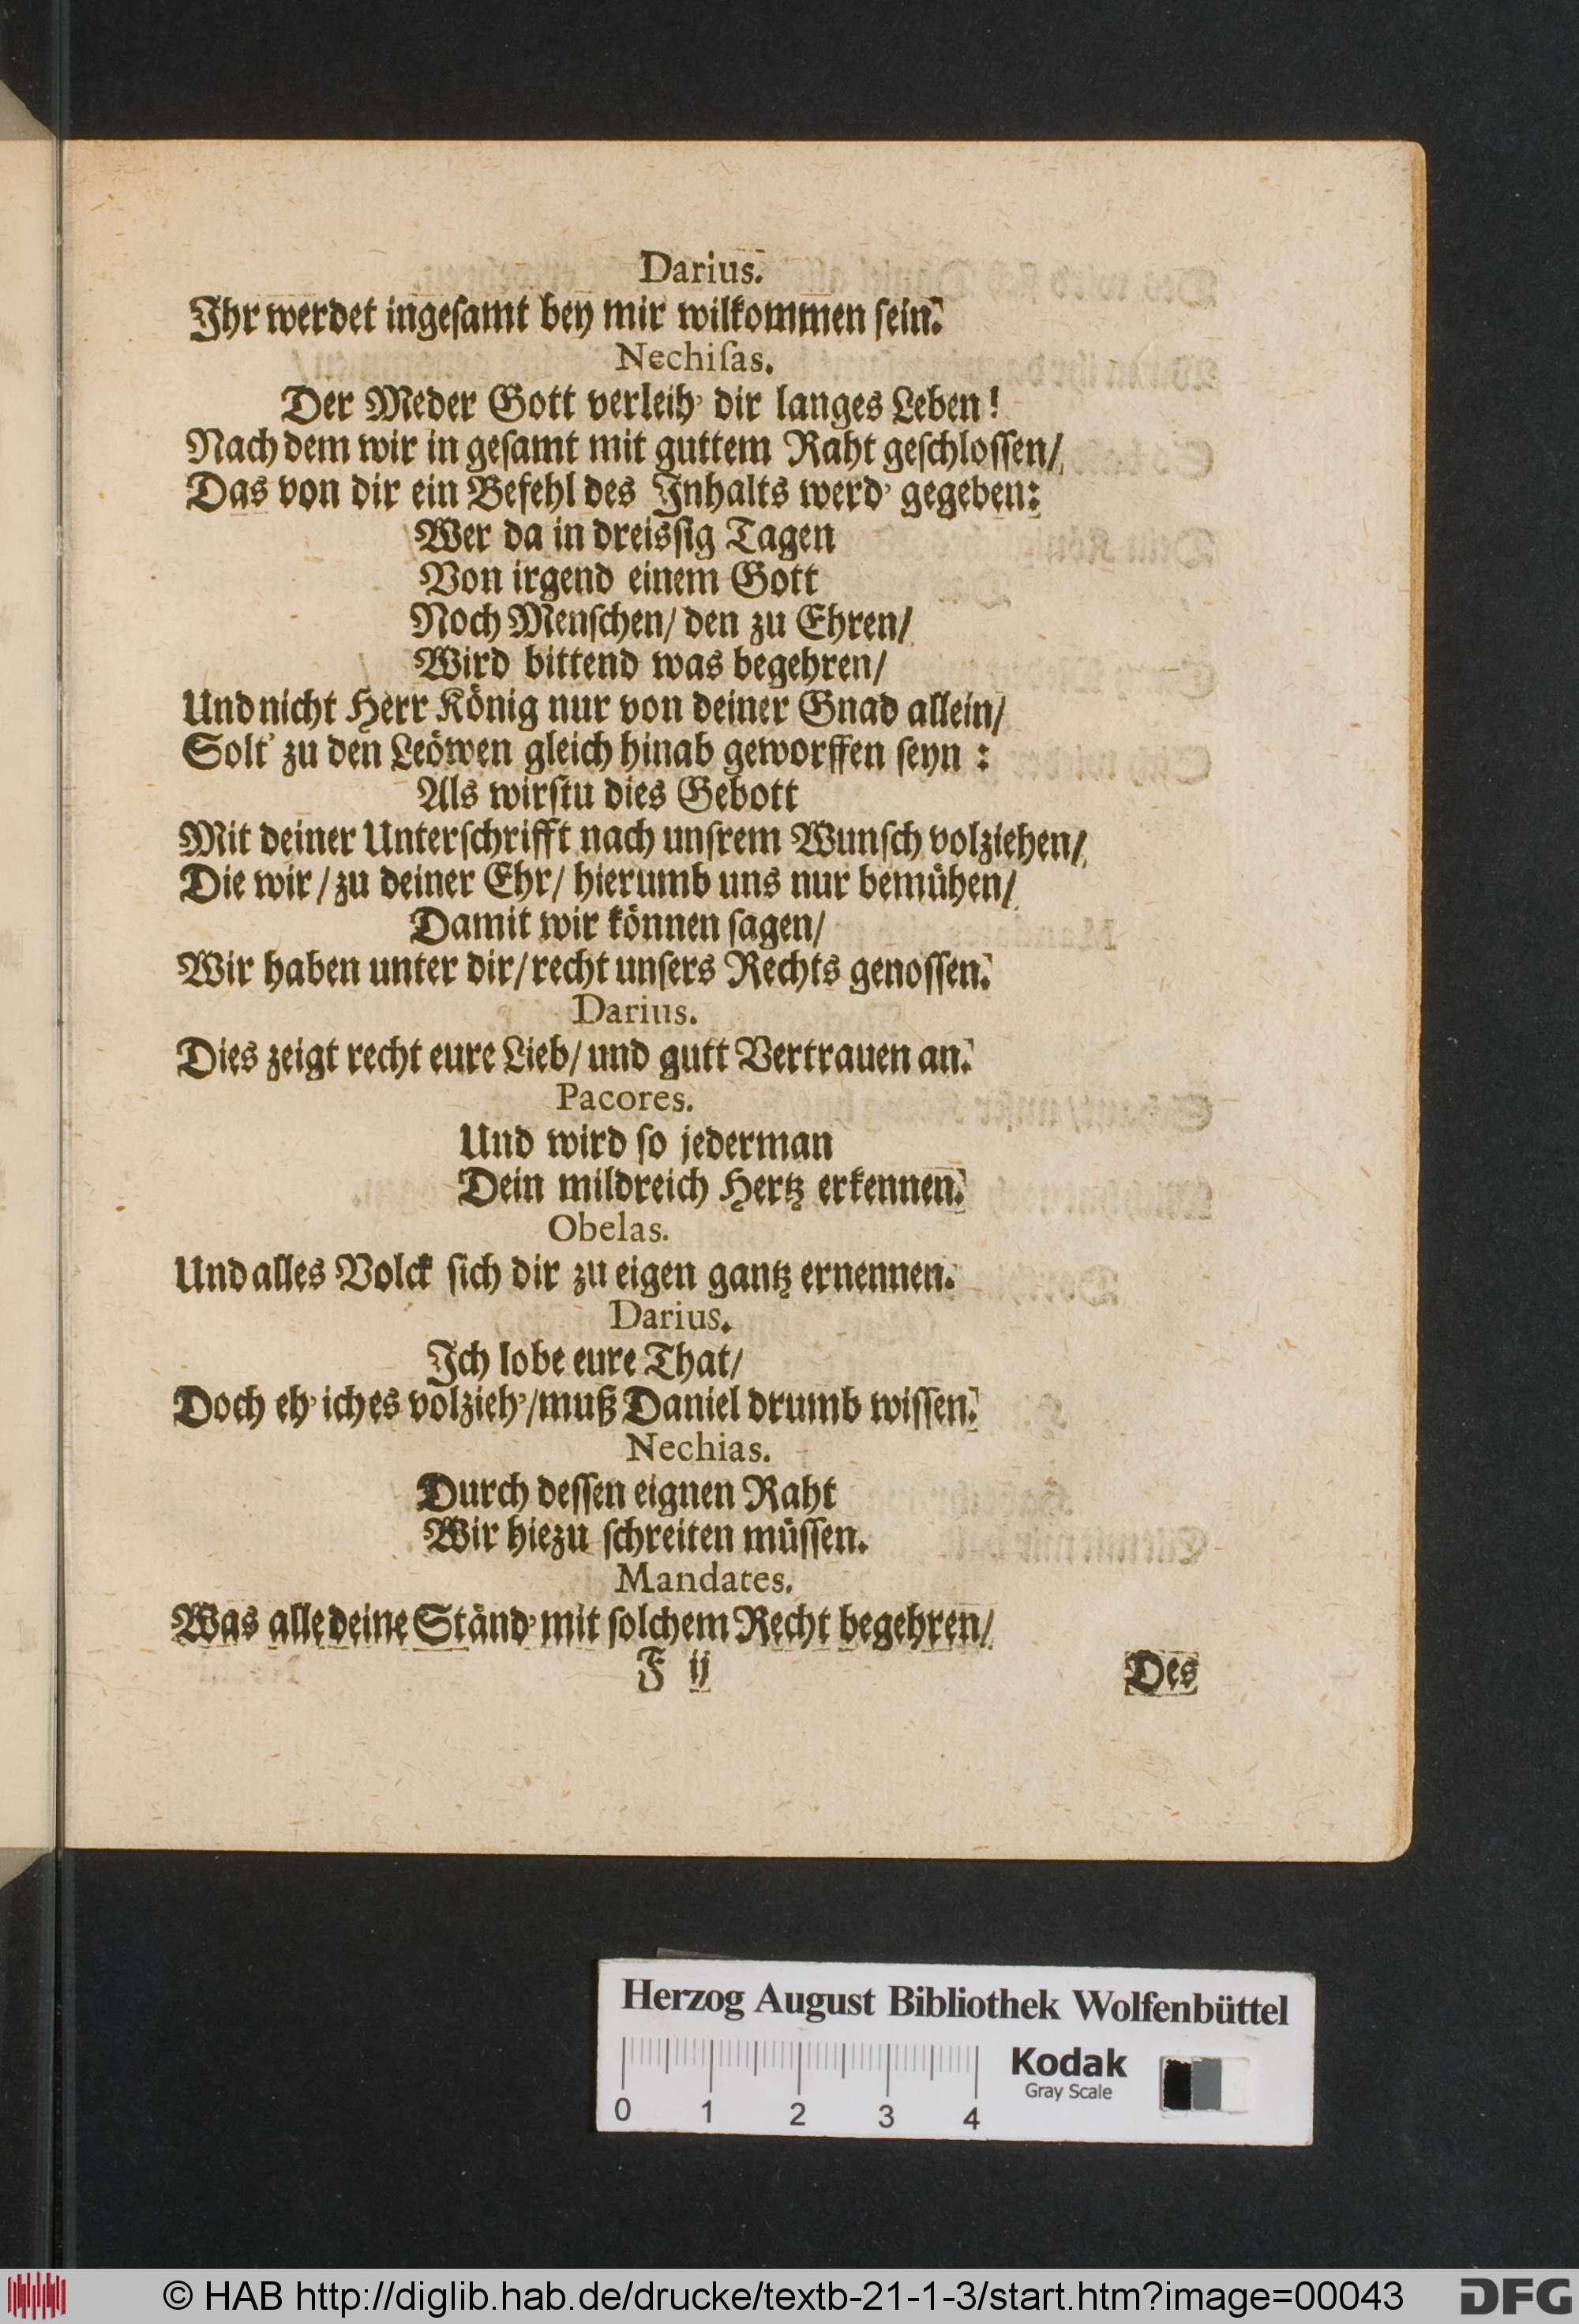 Darius.
Ihr werdet ingeſamt bey mir wilkommen ſein.
Nechiſas.
Der Meder Gott verleih' dir langes Leben!
Nach dem wir in geſamt mit guttem Raht geſchloſſen/
Das von dir ein Befehl des Inhalts werd' gegeben:
Wer da in dreisſig Tagen
Von irgend einem Gott
Noch Menſchen/ den zu Ehren/
Wird bittend was begehren/
Und nicht Herr König nur von deiner Gnad allein/
Solt' zu den Leöwen gleich hinab geworffen ſeyn:
Als wirſtu dies Gebott
Mit deiner Unterſchrifft nach unſrem Wunſch volziehen/
Die wir/ zu deiner Ehr/ hierumb uns nur bemühen/
Damit wir können ſagen/
Wir haben unter dir/ recht unſers Rechts genoſſen.
Darius.
Dies zeigt recht eure Lieb/ und gutt Vertrauen an.
Pacores.
Und wird ſo jederman
Dein mildreich Hertz erkennen.
Obelas.
Und alles Volck ſich dir zu eigen gantz ernennen.
Darius.
Ich lobe eure That/
Doch eh' ich es volzieh'/ muß Daniel drumb wiſſen.
Nechias.
Durch deſſen eignen Raht
Wir hiezu ſchreiten müſſen.
Mandates.
Was alle deine Ständ' mit ſolchem Recht begehren/
F ij Des
Herzog August Bibliothek Wolfenbüttel
0 1 2 3 4
Kodak
Gray Scale
© HAB http://diglib.hab.de/drucke/textb-21-1-3/start.htm?image=00043
DFG